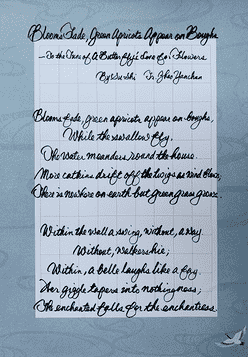 Blooms Fade, Green Apricots Appear on Boughs
—To the Tune of A Butterfly's Love for Flowers
By Su Shi Tr. Zhao Yanchun
Blooms fade, green apricots appear on boughs,
While the swallow fly,
The water meanders round the house.
More catkins drift off the twigs as wind blows,
There is nowhere on earth but green grass grows.
Within the wall a swing, without, a way.
Without, walkers hie;
Within, a belle laughs like a fay.
Her giggle tapers into nothingness;
The enchanted falls for the enchantress.